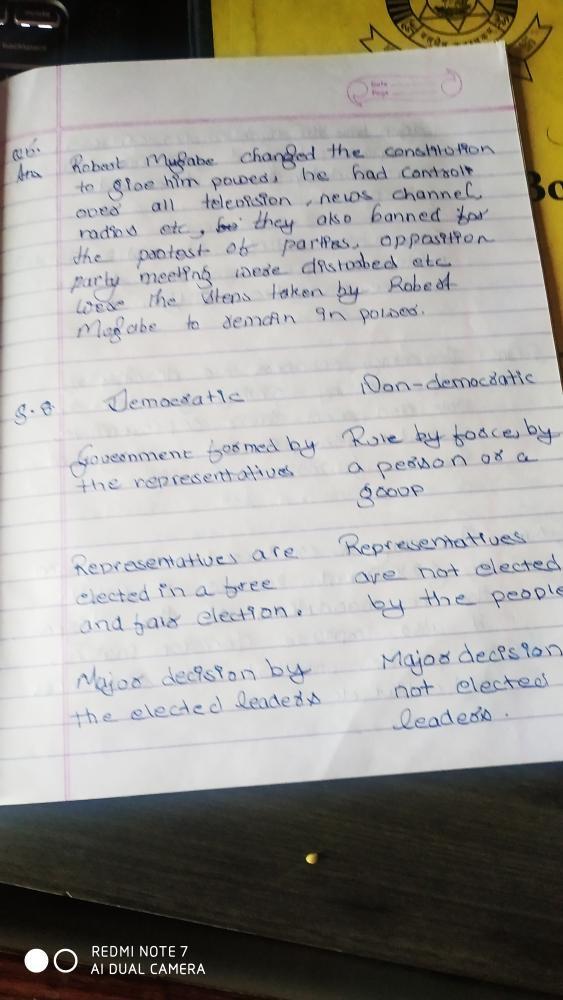 Date
Page
Q6.
Ans Robert Mugabe changed the constitution
to give him power, he had control
over all television, news channel,
radios etc, they also banned for
the protest of parties, opposition
party meeting were distrobed etc
were the steps taken by Robert
Mugabe to remain in power.
Democratic Non-democratic
Government formed by
the representatives
Rule by force, by
a person or a
group
Representatives are
elected in a free
and fair election.
Representatives
are not elected
by the people
Major decision by
the elected leaders
Major decision
not elected
leaders.
REDMI NOTE 7
AI DUAL CAMERA